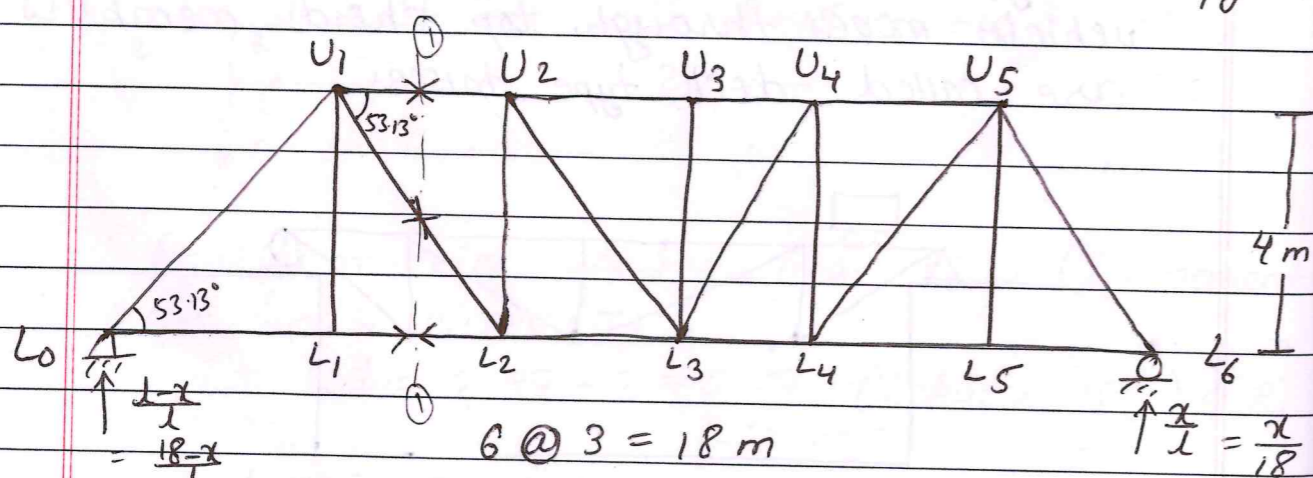 ①
U1 U2 U3 U4 U5
53.13°
4 m
53.13°
L0 L1 L2 L3 L4 L5 L6
①
l-x/l
= 18-x/
6 @ 3 = 18 m
x/l = x/18